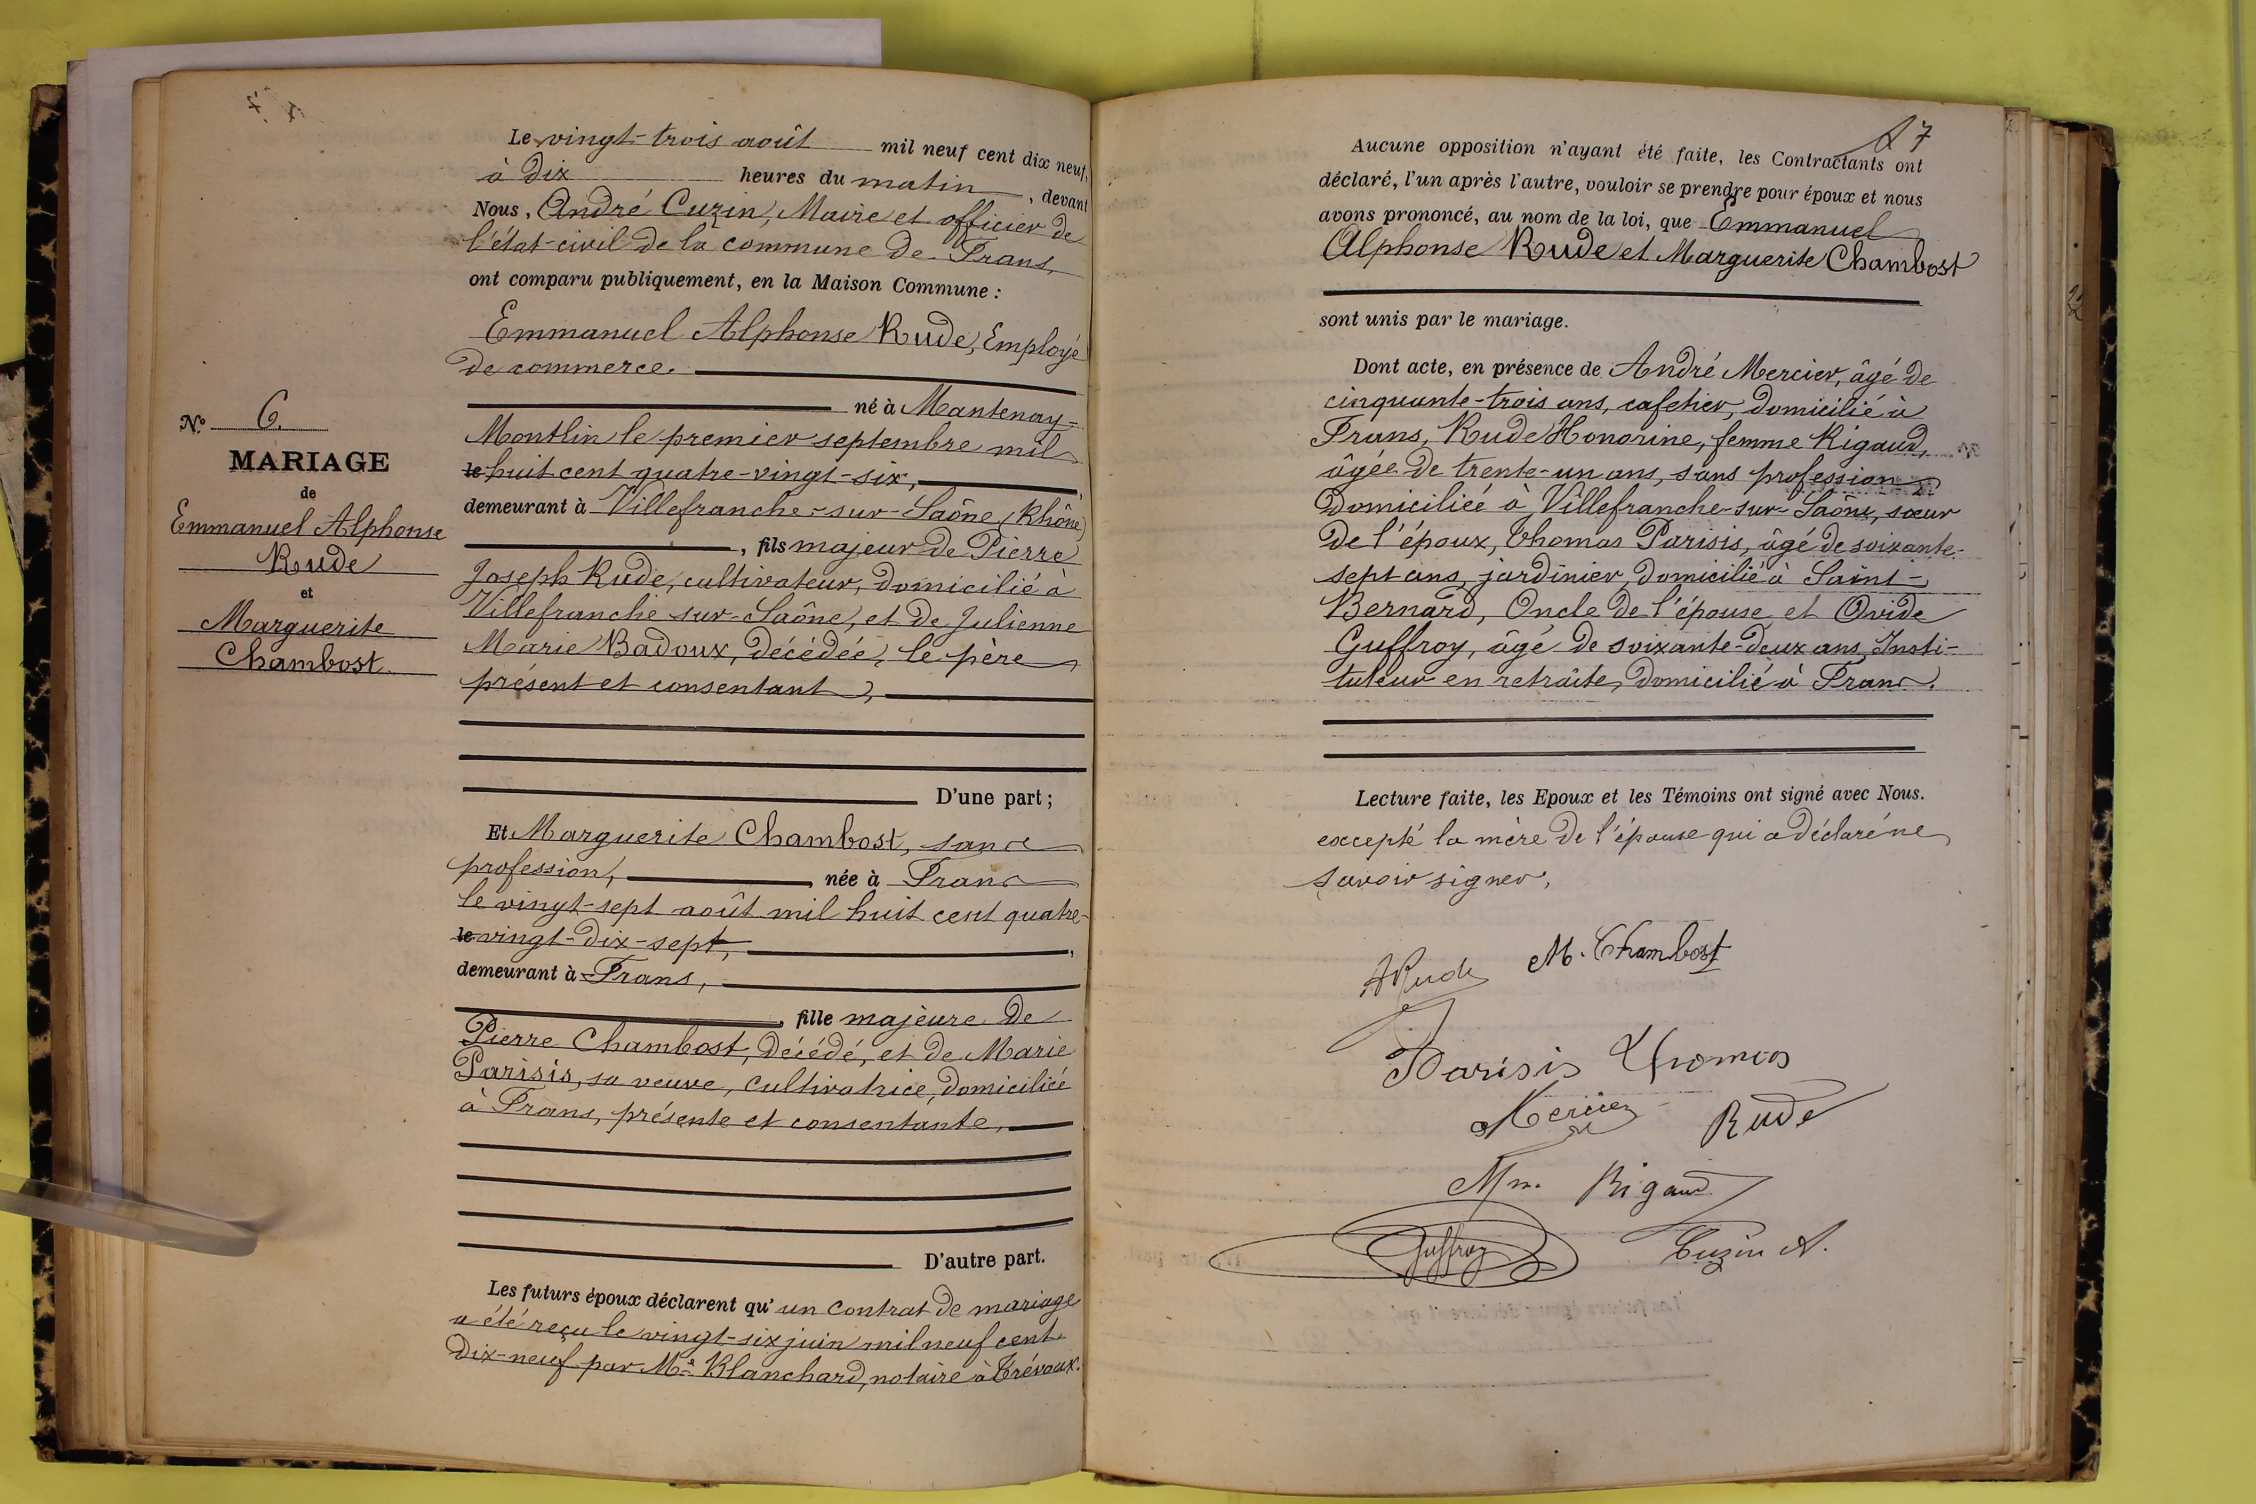 Le vingt-trois août mil neuf cent dix neuf,
à dix heures du matin, devant
Nous, André Cuzin, Maire et officier de
l'état-civil de la commune de Frans,
ont comparu publiquement, en la Maison Commune :
Emmanuel Alphonse Rude, Employé
de commerce.
né à Mantenay-
Montlin le premier septembre mil
le huit cent quatre-vingt-six,
demeurant à Villefranche-sur-Saône (Rhône)
, fils majeur de Pierre
Joseph Rude, cultivateur, domicilié à
Villefranche sur-Saône, et de Julienne
Marie Badoux, décédée, le père
présent et consentant,
D'une part ;
Et Marguerite Chambost, sans
profession, née à Frans
le vingt-sept août mil huit cent quatre-
le vingt-dix-sept,
demeurant à Frans,
, fille majeure de
Pierre Chambost, décédé, et de Marie
Parisis, sa veuve, cultivatrice, domiciliée
à Frans, présente et consentante,
D'autre part.
Les futurs époux déclarent qu'un contrat de mariage
a été reçu le vingt-six juin mil neuf cent
dix-neuf par Me Blanchard, notaire à Trévoux.
No 6.
MARIAGE
de
Emmanuel Alphonse
Rude
et
Marguerite
Chambost
7
Aucune opposition n'ayant été faite, les Contractants ont
déclaré, l'un après l'autre, vouloir se prendre pour époux et nous
avons prononcé, au nom de la loi, que Emmanuel
Alphonse Rude et Marguerite Chambost
sont unis par le mariage.
Dont acte, en présence de André Mercier, âgé de
cinquante-trois ans, cafetier, domicilié à
Frans, Rude Honorine, femme Rigaud,
âgée de trente-un ans, sans profession
domiciliée à Villefranche-sur-Saône, sœur
de l'époux, Thomas Parisis, âgé de soixante-
sept ans, jardinier, domicilié à Saint-
Bernard, Oncle de l'épouse et Ovide
Guffroy, âgé de soixante-deux ans, Insti-
tuteur en retraite, domicilié à Frans.
Lecture faite, les Epoux et les Témoins ont signé avec Nous.
excepté la mère de l'épouse qui a déclaré ne
savoir signer.
A Rude M. Chambost
Parisis Thomas
Mercier Rude
Mme Rigaud
Guffroy Cuzin A.